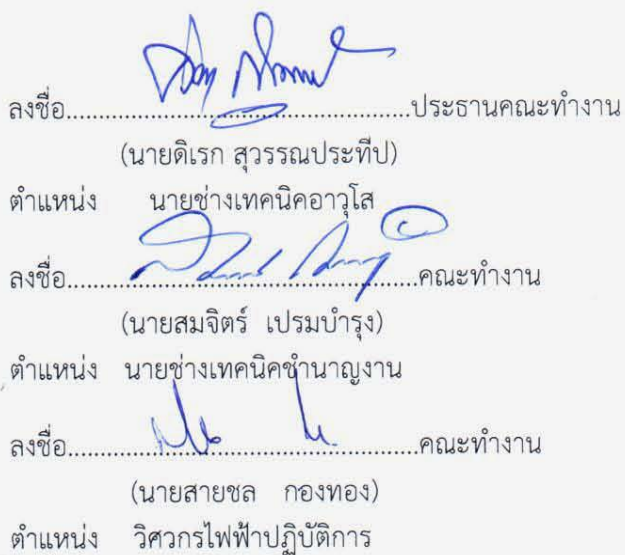 ลงชื่อ..................................................ประธานคณะทำงาน
(นายดิเรก สุวรรณประทีป)
ตำแหน่ง นายช่างเทคนิคอาวุโส
ลงชื่อ..................................................คณะทำงาน
(นายสมจิตร์ เปรมบำรุง)
ตำแหน่ง นายช่างเทคนิคชำนาญงาน
ลงชื่อ..................................................คณะทำงาน
(นายสายชล กองทอง)
ตำแหน่ง วิศวกรไฟฟ้าปฏิบัติการ